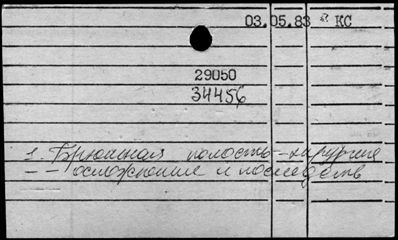 03.05.83 КС
29050
34456
1. Брюшная полость - хирургия
- - осложнение и последств